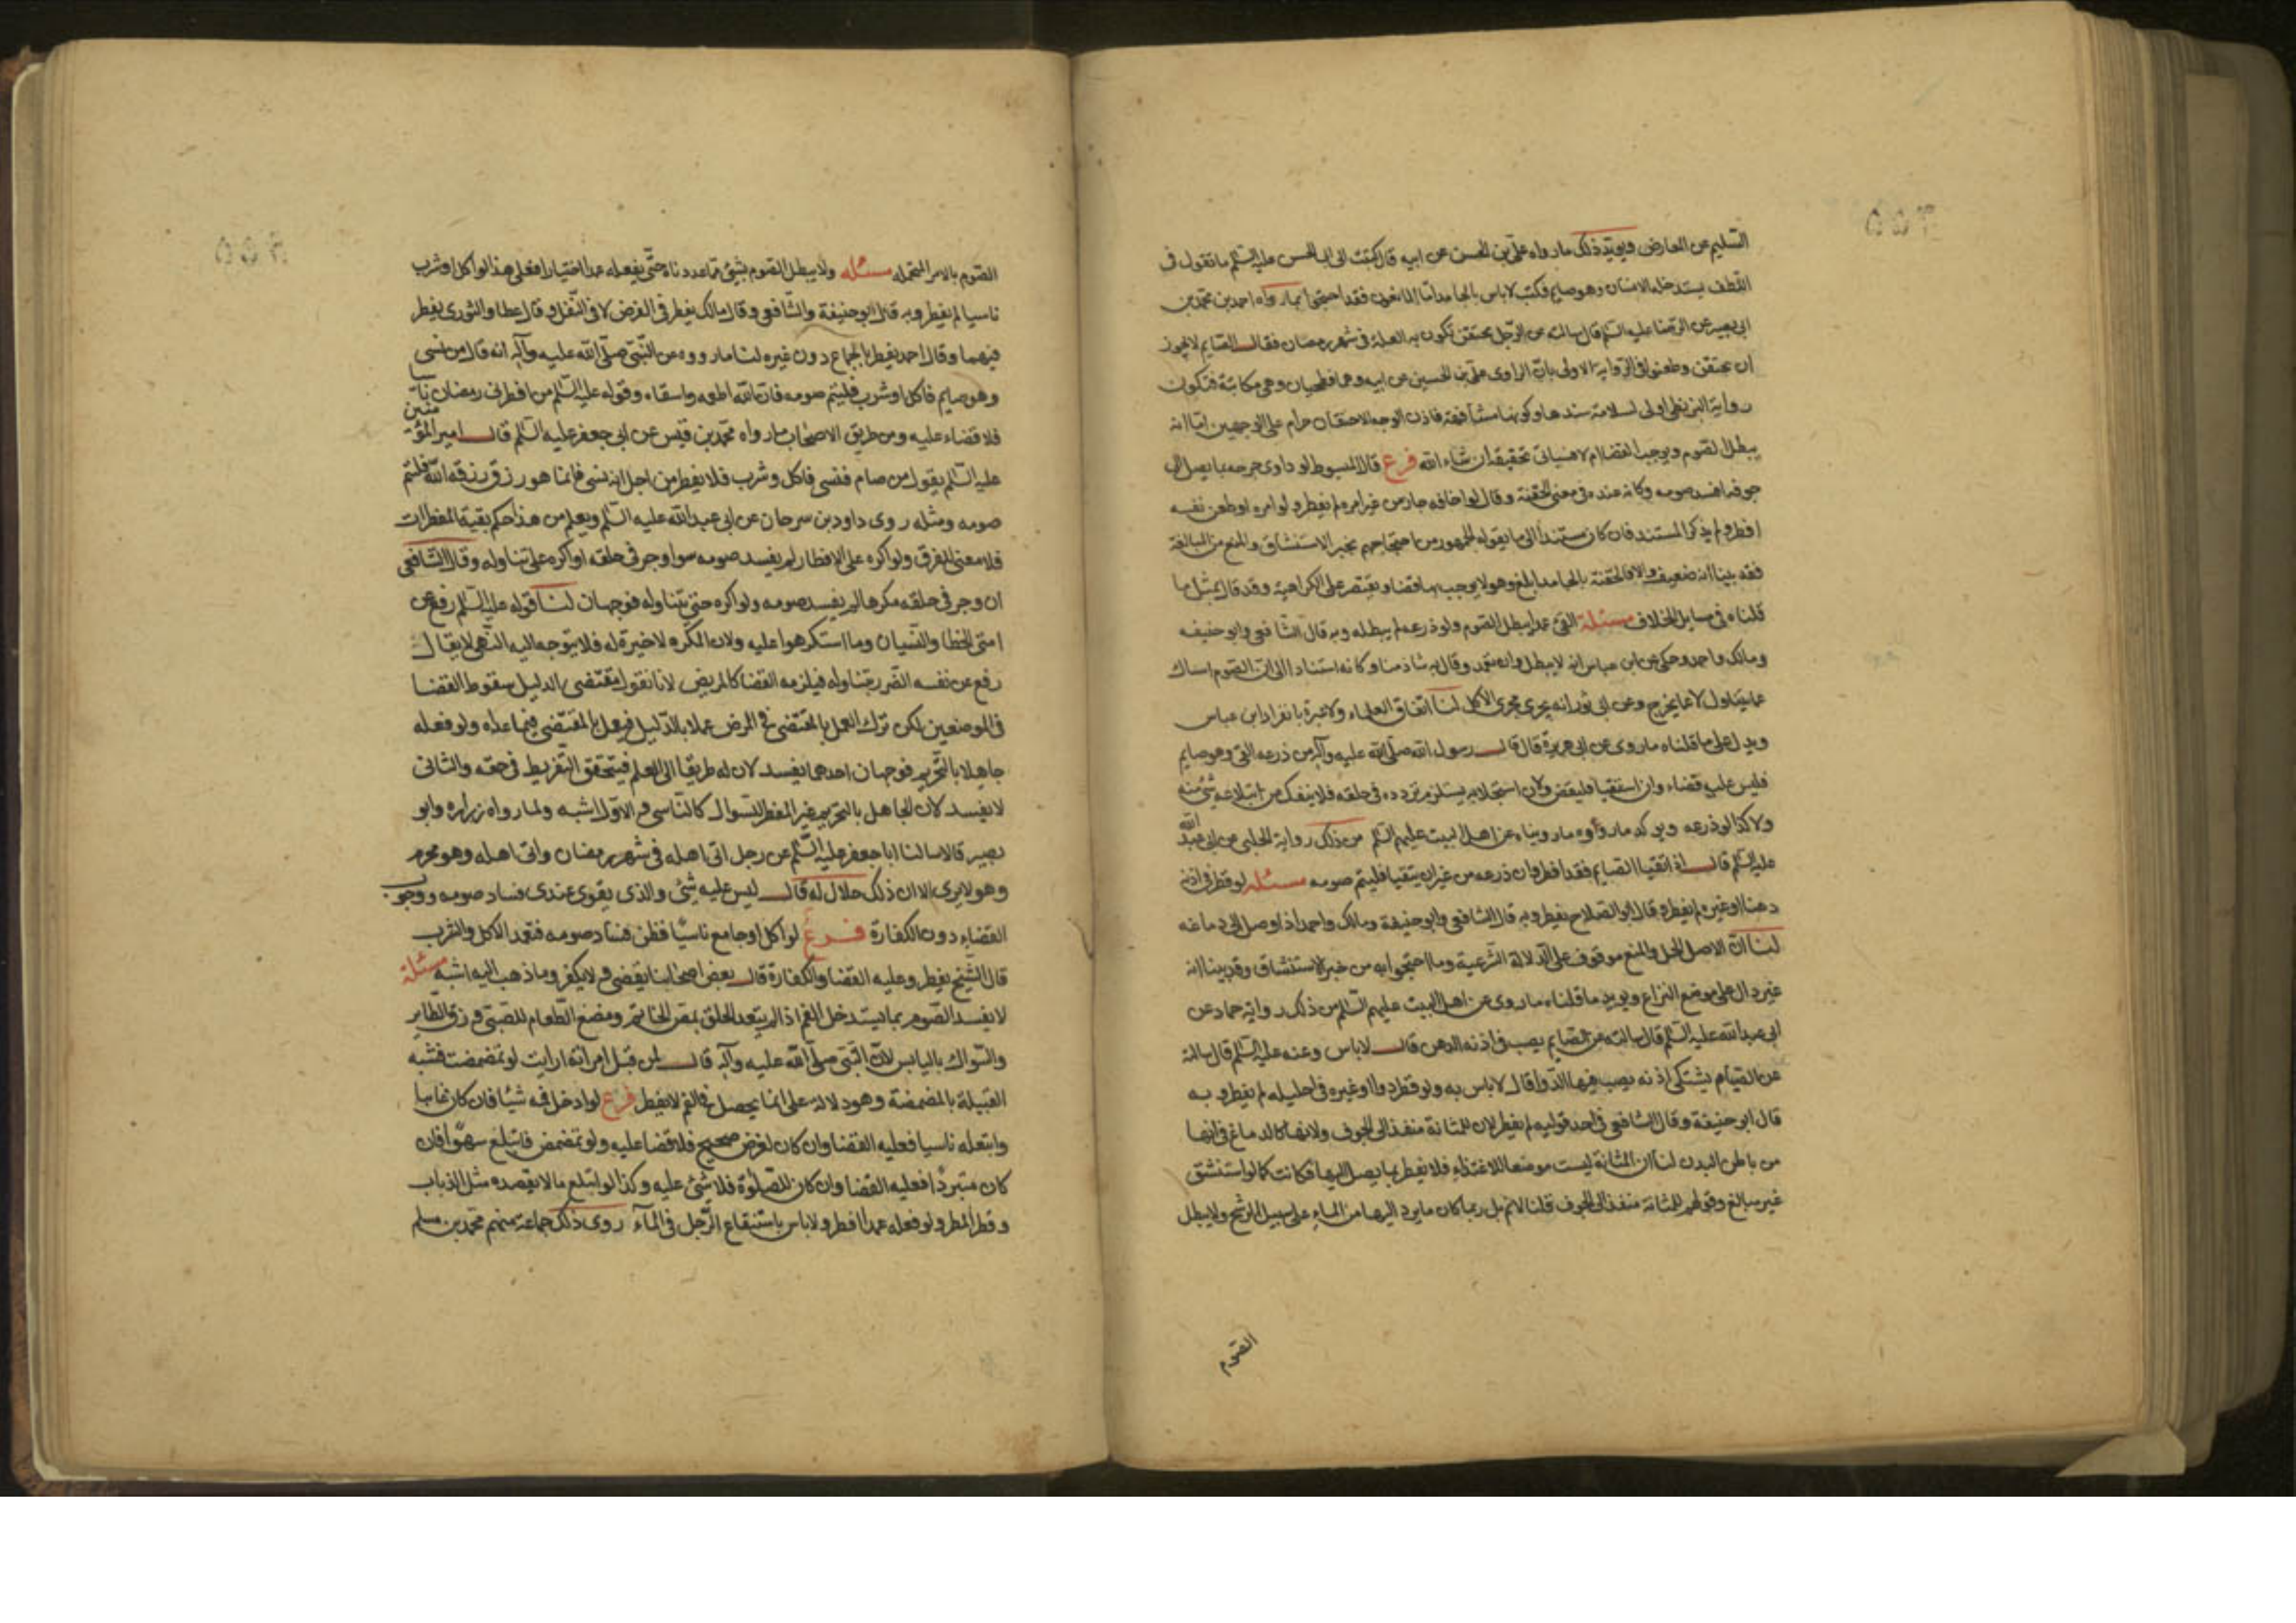 السليم عن المعارض ويؤيد ذلك ما رواه علي بن الحسن عن ابيه قال كتبت الى ابي الحسن عليه السلم ما تقول في
اللطف يستدخله الانسان وهو صايم فكتب لا باس بالجامد اما المانعون فقد احتجوا بما رواه احمد بن محمد بن
ابي بصير عن الرضا عليه السلم قال سالته عن الرجل يحتقن تكون به العلة في شهر رمضان فقال الصايم لا يجوز
ان يحتقن وطعنوا في الرواية الاولى بان الراوي علي بن الحسين عن ابيه وهما فطحيان وهي مكاتبة فتكون
رواية البزنطي اولى لسلامة سندها وكونها مشافهة فاذن الوجه الاحتقان حرام على الوجهين اما انه
يبطل الصوم ويوجب القضا ام لا فسياتي تحقيقه ان شاء الله فرع قال المبسوط لو داوى جرحه بما يصل الى
جوفه افسد صومه وكانه عنده في معنى الحقنة وقال لو اجافه جار من غير امره لم يفطر ولو امره او طعن نفسه
افطر ولم يذكر المستند فان كان مستندا الى ما يقوله الجمهور من احتجاجهم بخبر الاستنشاق والمنع من المبالغة
فقد بينا انه ضعيف والا فالحقنة بالجامد ابلغ وهو لا يوجب بها قضا ويقتصر على الكراهية وقد قال بمثل ما
قلناه في مسايل الخلاف مسئلة القئ عمدا يبطل الصوم ولو ذرعه لم يبطله وبه قال الشافعي وابو حنيفه
ومالك واحمد وحكي عن ابن عباس انه لا يبطل وان تعمد وقال به شاذ منا وكانه استنادا الى ان الصوم امساك
عما يتناول لا عما يخرج وعن ابي ثور انه يجرى مجرى الاكل لنا اتفاق العلماء ولا عبرة بانفراد ابن عباس
ويدل على ما قلناه ما روى عن ابي هريرة قال قال رسول الله صلى الله عليه وآله من ذرعه القئ وهو صايم
فليس عليه قضاء وان استقيا فليقض ولان استجلابه يستلزم تردده في حلقه فلا ينفك من ابتلاعه شئ منه
ولا كذا لو ذرعه ويؤكد ما رووه ما رويناه عن اهل البيت عليهم السلم من ذلك رواية الحلبي عن ابي عبد الله
عليه السلم قال اذا تقيا الصايم فقد افطر وان ذرعه من غير ان يتقيا فليتم صومه مسئله لو قطر في اذنه
دهنا او غيره لم يفطر وقال ابو الصلاح يفطر وبه قال الشافعي وابو حنيفة ومالك واحمد اذا وصل الى دماغه
لنا ان الاصل الحل والمنع موقوف على الدلالة الشرعية وما احتجوا به من خبر الاستنشاق وقد بينا انه
غير دال على موضع النزاع ويؤيد ما قلناه ما روى عن اهل البيت عليهم السلم من ذلك رواية حماد عن
ابي عبد الله عليه السلم قال سالته عن الصايم يصب في اذنه الدهن قال لا باس وعنه عليه السلم قال سالته
عن الصيام يشتكي اذنه يصب فيها الدوا قال لا باس به ولو قطر دوا او غيره في احليله لم يفطر وبه
قال ابو حنيفة وقال الشافعي في احد قوليه لم يفطر لان للمثانة منفذ الى الجوف ولانها كالدماغ في انها
من باطن البدن لنا ان المثانة ليست موضعا للاغتذاء فلا يفطر بما يصل اليها فكانت كما لو استنشق
غير مبالغ وقولهم للمثانة منفذ الى الجوف قلنا لا نم بل ربما كان ما يرد اليها من الماء على سبيل الترشح ولا يبطل
الصوم
الصوم بالامر المحتمله مسئله ولا يبطل الصوم بشئ مما عددناه حتى يفعله عمدا اختيارا فعلى هذا لو اكل او شرب
ناسيا لم يفطر وبه قال ابو حنيفة والشافعي وقال مالك يفطر في الفرض لا في النفل وقال عطا والثوري يفطر
فيهما وقال احمد يفطر بالجماع دون غيره لنا ما رووه عن النبي صلى الله عليه وآله انه قال من نسى
وهو صايم فاكل او شرب فليتم صومه فان الله اطعمه واسقاه وقوله عليه السلم من افطر في رمضان ناسيا
فلا قضاء عليه ومن طريق الاصحاب ما رواه محمد بن قيس عن ابي جعفر عليه السلم قال امير المؤمنين
عليه السلم يقول من صام فنسى فاكل وشرب فلا يفطر من اجل انه نسى فانما هو رزق رزقه الله فليتم
صومه ومثله روى داود بن سرحان عن ابي عبد الله عليه السلم ويعلم من هذا حكم بقية المفطرات
فلا معنى للفرق ولو اكره على الافطار لم يفسد صومه سوا وجر في حلقه او اكره على تناوله وقال الشافعي
ان وجر في حلقه مكرها لم يفسد صومه ولو اكره حتى تناوله فوجهان لنا قوله عليه السلم رفع عن
امتي الخطا والنسيان وما استكرهوا عليه ولان المكره لا خيرة له فلا يتوجه اليه النهى لا يقال
رفع عن نفسه الضرر بتناوله فيلزمه القضا كالمريض لانا نقول مقتضى الدليل سقوط القضا
في الموضعين لكن ترك العمل بالمقتضى في المرض عملا بالدليل فيعمل بالمقتضى فيما عداه ولو فعله
جاهلا بالتحريم فوجهان احدهما يفسد لان له طريقا الى العلم فيتحقق التفريط في حقه والثاني
لا يفسد لان الجاهل بالتحريم غير المفطر للسوال كالناسي والاول اشبه ولما رواه زراره وابو
بصير قالا سالنا ابا جعفر عليه السلم عن رجل اتى اهله في شهر رمضان واتى اهله وهو محرم
وهو لا يرى الا ان ذلك حلال له قال ليس عليه شئ والذى يقوى عندى فساد صومه ووجوب
القضاء دون الكفارة فرع لو اكل او جامع ناسيا فظن فساد صومه فتعمد الاكل والشرب
قال الشيخ يفطر وعليه القضا والكفارة قال بعض اصحابنا يقضى ولا يكفر وما ذهب اليه اشبه مسئلة
لا يفسد الصوم بما يستدخل الفم اذا لم يتعد الحلق بمص الخاتم ومضغ الطعام للصبي وزق الطاير
والسواك باليابس لان النبي صلى الله عليه وآله قال لمن قبل امراته ارايت لو تمضمضت فشبه
القبلة بالمضمضة وهو دلالة على ان ما يحصل في الفم لا يفطر فرع لو ادخل فيه شيئا فان كان عابثا
وابتعله ناسيا فعليه القضا وان كان لغرض صحيح فلا قضا عليه ولو تمضمض فابتلع سهوا فان
كان متبردا فعليه القضا وان كان للصلوة فلا شئ عليه وكذا لو ابتلع ما لا يقصده مثل الذباب
وقطر المطر ولو فعله عمدا افطر ولا باس باستنقاع الرجل في الماء روى ذلك جماعة منهم محمد بن مسلم